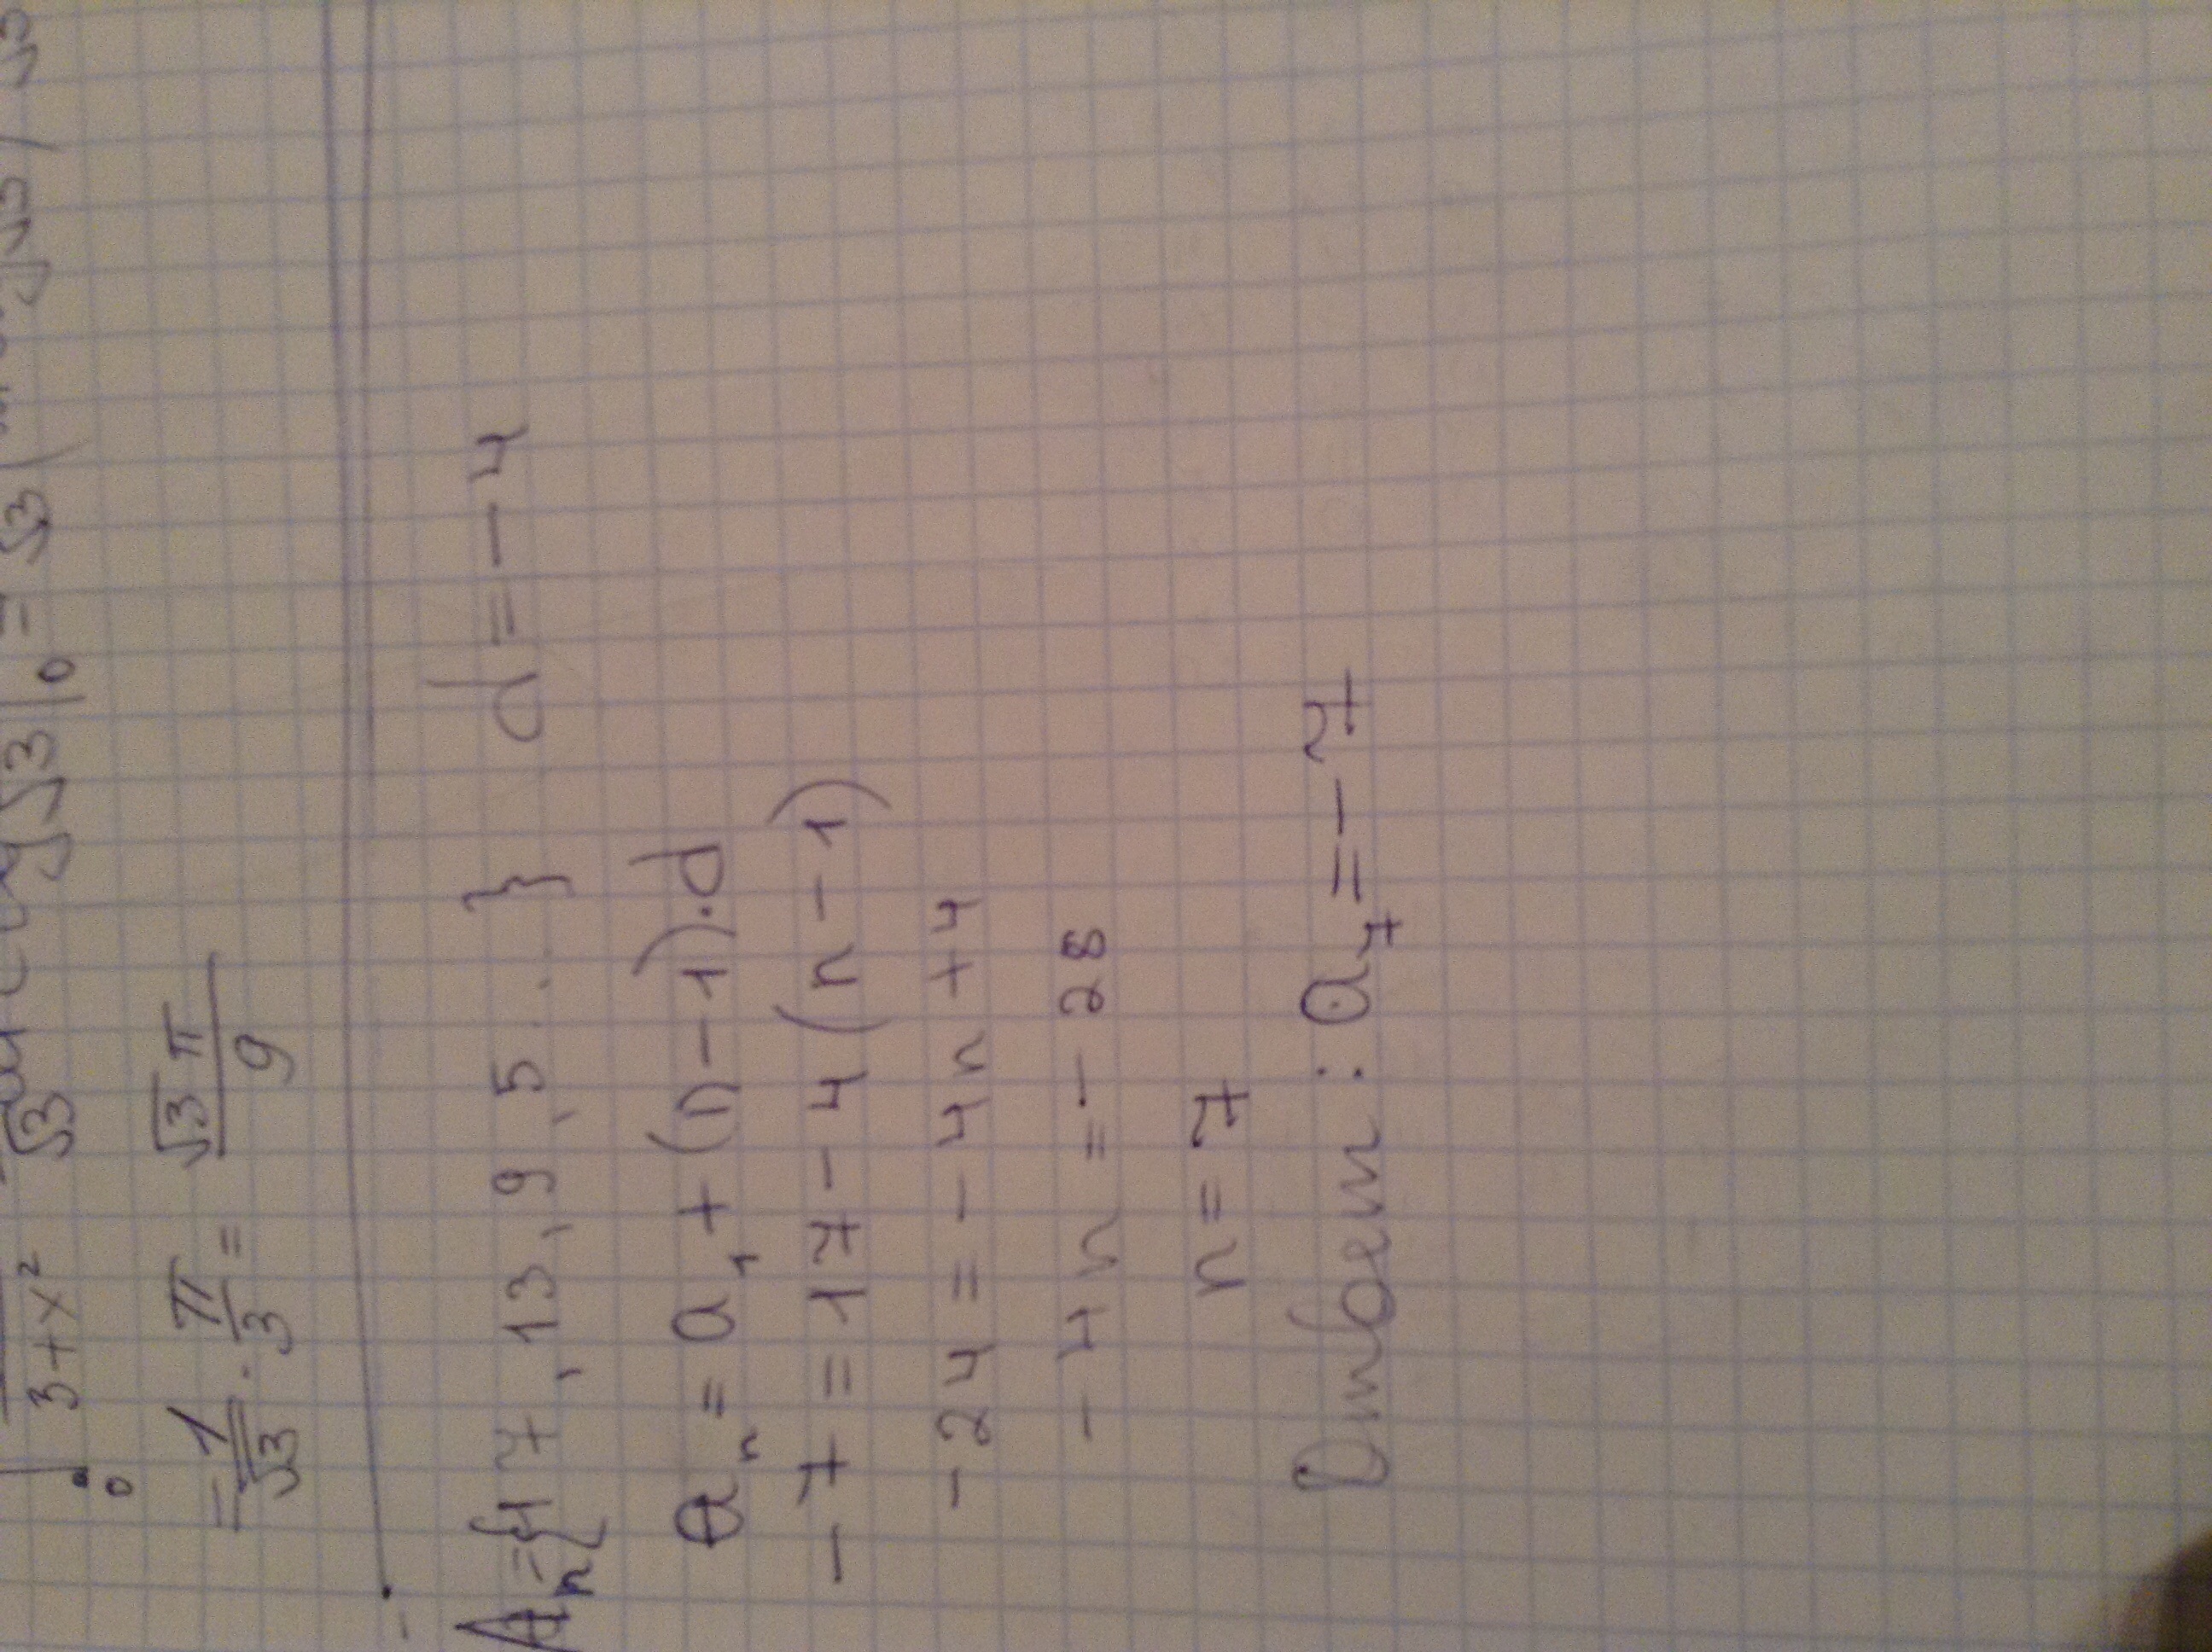 ∫₀ 3+x² √3 √3|₀ = √3(
= 1/√3 · π/3 = √3π/9
Aₙ={17, 13, 9, 5 . . . } d = -4
aₙ = a₁ + (n-1)·d
-7 = 17 - 4(n-1)
-24 = -4n + 4
-4n = -28
n = 7
Ответ: a₇ = -7